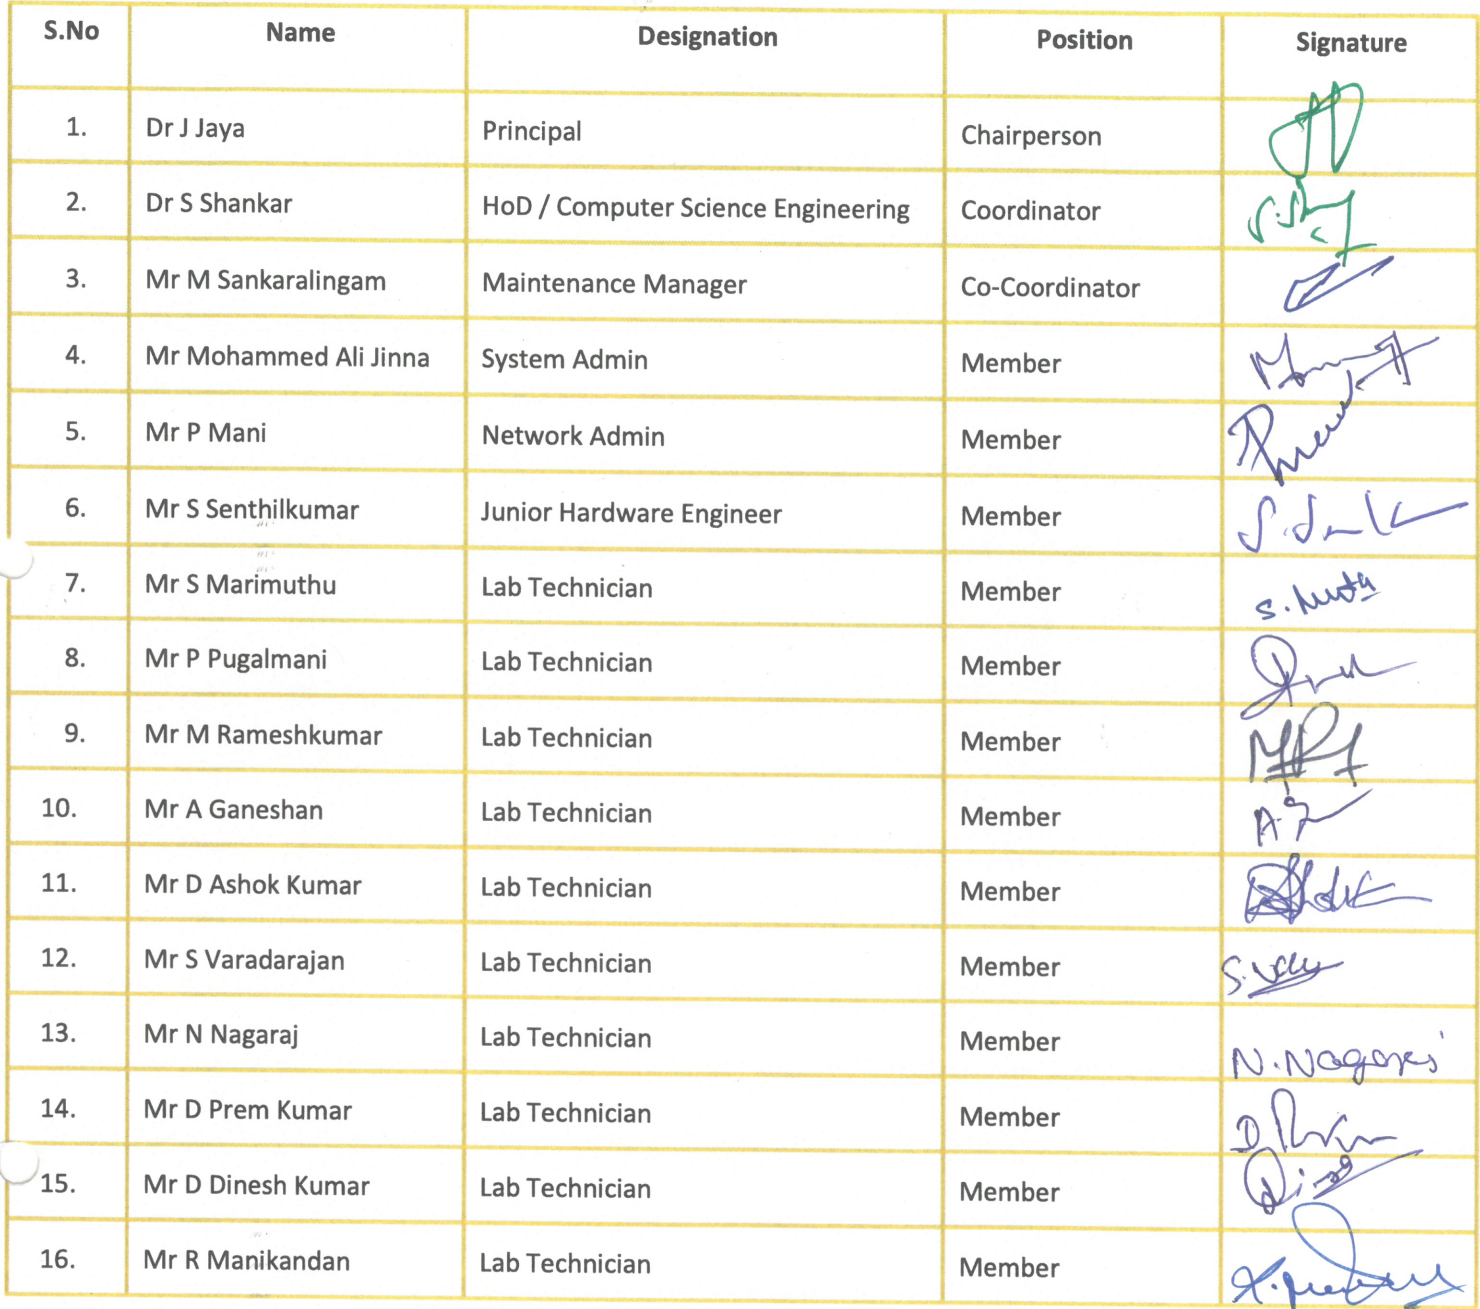 S.No Name Designation Position Signature
1. Dr J Jaya Principal Chairperson
2. Dr S Shankar HoD / Computer Science Engineering Coordinator
3. Mr M Sankaralingam Maintenance Manager Co-Coordinator
4. Mr Mohammed Ali Jinna System Admin Member
5. Mr P Mani Network Admin Member
6. Mr S Senthilkumar Junior Hardware Engineer Member
7. Mr S Marimuthu Lab Technician Member
8. Mr P Pugalmani Lab Technician Member
9. Mr M Rameshkumar Lab Technician Member
10. Mr A Ganeshan Lab Technician Member
11. Mr D Ashok Kumar Lab Technician Member
12. Mr S Varadarajan Lab Technician Member
13. Mr N Nagaraj Lab Technician Member N.Nagaraj
14. Mr D Prem Kumar Lab Technician Member
15. Mr D Dinesh Kumar Lab Technician Member
16. Mr R Manikandan Lab Technician Member